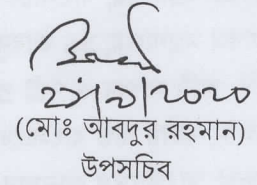 ২১/৯/২০২০
(মোঃ আবদুর রহমান)
উপসচিব